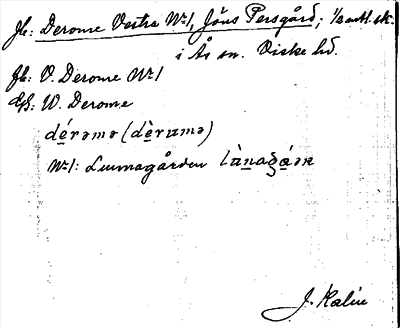 Jb: Derome Vestra Nº1, Jöns Persgård; 1/2 mtl. sk.
i Ås sn. Viske hd.
Jb: V. Derome Nº1
W. Derome
dérəmə (dèrɷmə)
Nº1: Lunnagården
J. Kalén